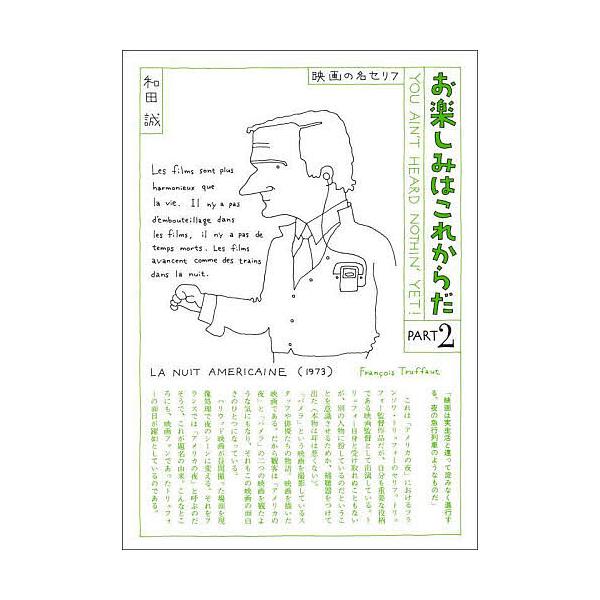 お楽しみはこれからだ
YOU AIN'T HEARD NOTHIN' YET!
PART2
映画の名セリフ
和田 誠
Les films sont plus
harmonieux que
la vie. Il n'y a pas
d'embouteillage dans
les films, il n'y a pas de
temps morts. Les films
avancent comme des trains
dans la nuit.
LA NUIT AMERICAINE (1973)
François Truffaut
「映画は実生活と違って淀みなく進行す
る。夜の急行列車のようなものだ」
これは「アメリカの夜」におけるフラ
ンソワ・トリュフォーのセリフ。トリュ
フォー監督作品だが、自分も重要な役柄
である映画監督として出演している。ト
リュフォー自身と受け取れぬこともない
が、別の人物に扮しているのだというこ
とを意識させるためか、補聴器をつけて
出た（本物は耳は悪くない）。
「パメラ」という映画を撮影しているス
タッフや俳優たちの物語。映画を描いた
映画である。だから観客は「アメリカの
夜」と「パメラ」の二つの映画を観たよ
うな気にもなり、それもこの映画の面白
さのひとつになっている。
ハリウッド映画が昼間撮った場面を現
像処理で夜のシーンに変える、それをフ
ランスでは「アメリカの夜」と呼ぶのだ
そうで、これが題名の由来。こんなとこ
ろにも、映画ファンであったトリュフォ
ーの面目が躍如としているのである。